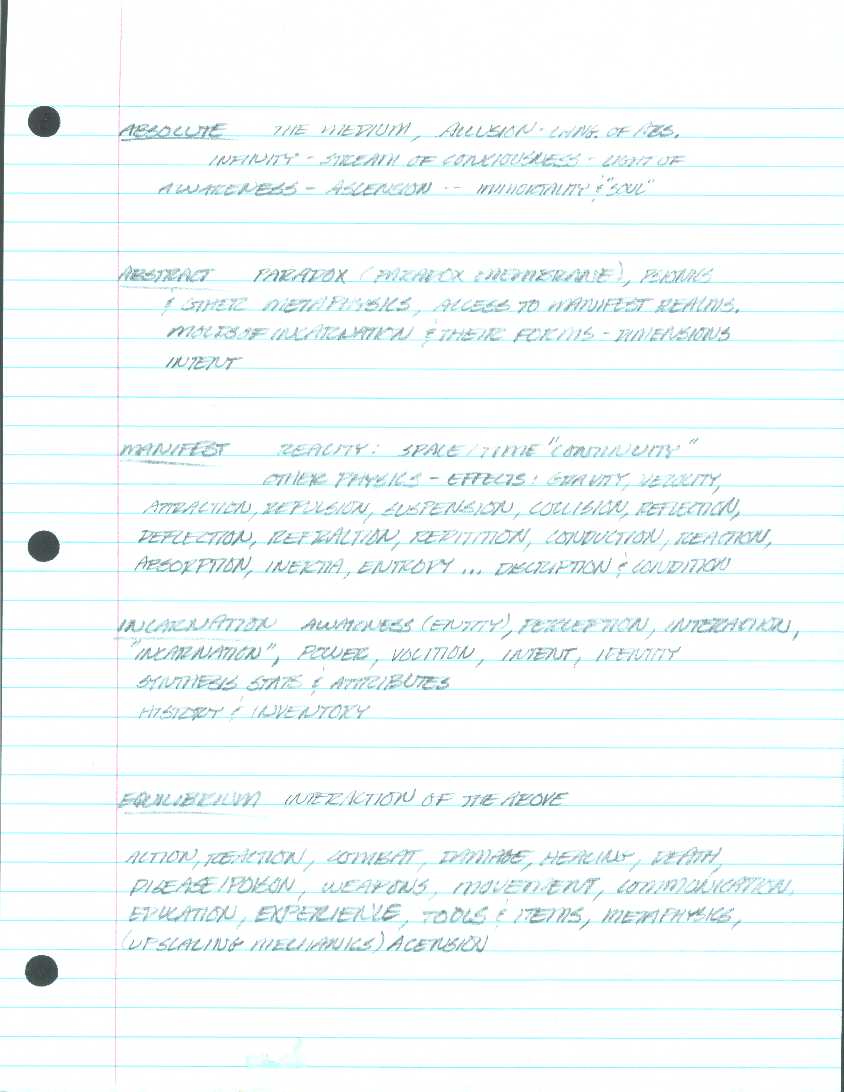 ABSOLUTE THE MEDIUM, ALLUSION - LANG. OF ABS.
INFINITY - STREAM OF CONCIOUSNESS - LIGHT OF
AWARENESS - ASCENSION -- IMMORTALITY & "SOUL"
ABSTRACT PARADOX (PARADOX MEMBRANE), PSIONICS
& OTHER METAPHYSICS, ACCESS TO MANIFEST REALMS.
MOLDS OF INCARNATION & THEIR FORMS - DIMENSIONS
INTENT
MANIFEST REALITY: SPACE/TIME "CONTINUITY"
OTHER PHYSICS - EFFECTS: GRAVITY, VELOCITY,
ATTRACTION, REPULSION, SUSPENSION, COLLISION, REFLECTION,
DEFLECTION, REFRACTION, REPITITION, CONDUCTION, REACTION,
ABSORPTION, INERTIA, ENTROPY ... DISCRIPTION & CONDITION
INCARNATION AWARNESS (ENTITY), PERCEPTION, INTERACTION,
"INCARNATION", POWER, VOLITION, INTENT, IDENTITY
SYNTHESIS STATS & ATTRIBUTES
HISTORY & INVENTORY
EQUILIBRIUM INTERACTION OF THE ABOVE
ACTION, REACTION, COMBAT, DAMAGE, HEALING, DEATH,
DISEASE/POISON, WEAPONS, MOVEMENT, COMMUNICATION,
EDUCATION, EXPERIENCE, TOOLS & ITEMS, METAPHYSICS,
(UPSCALING MECHANICS) ACENSION